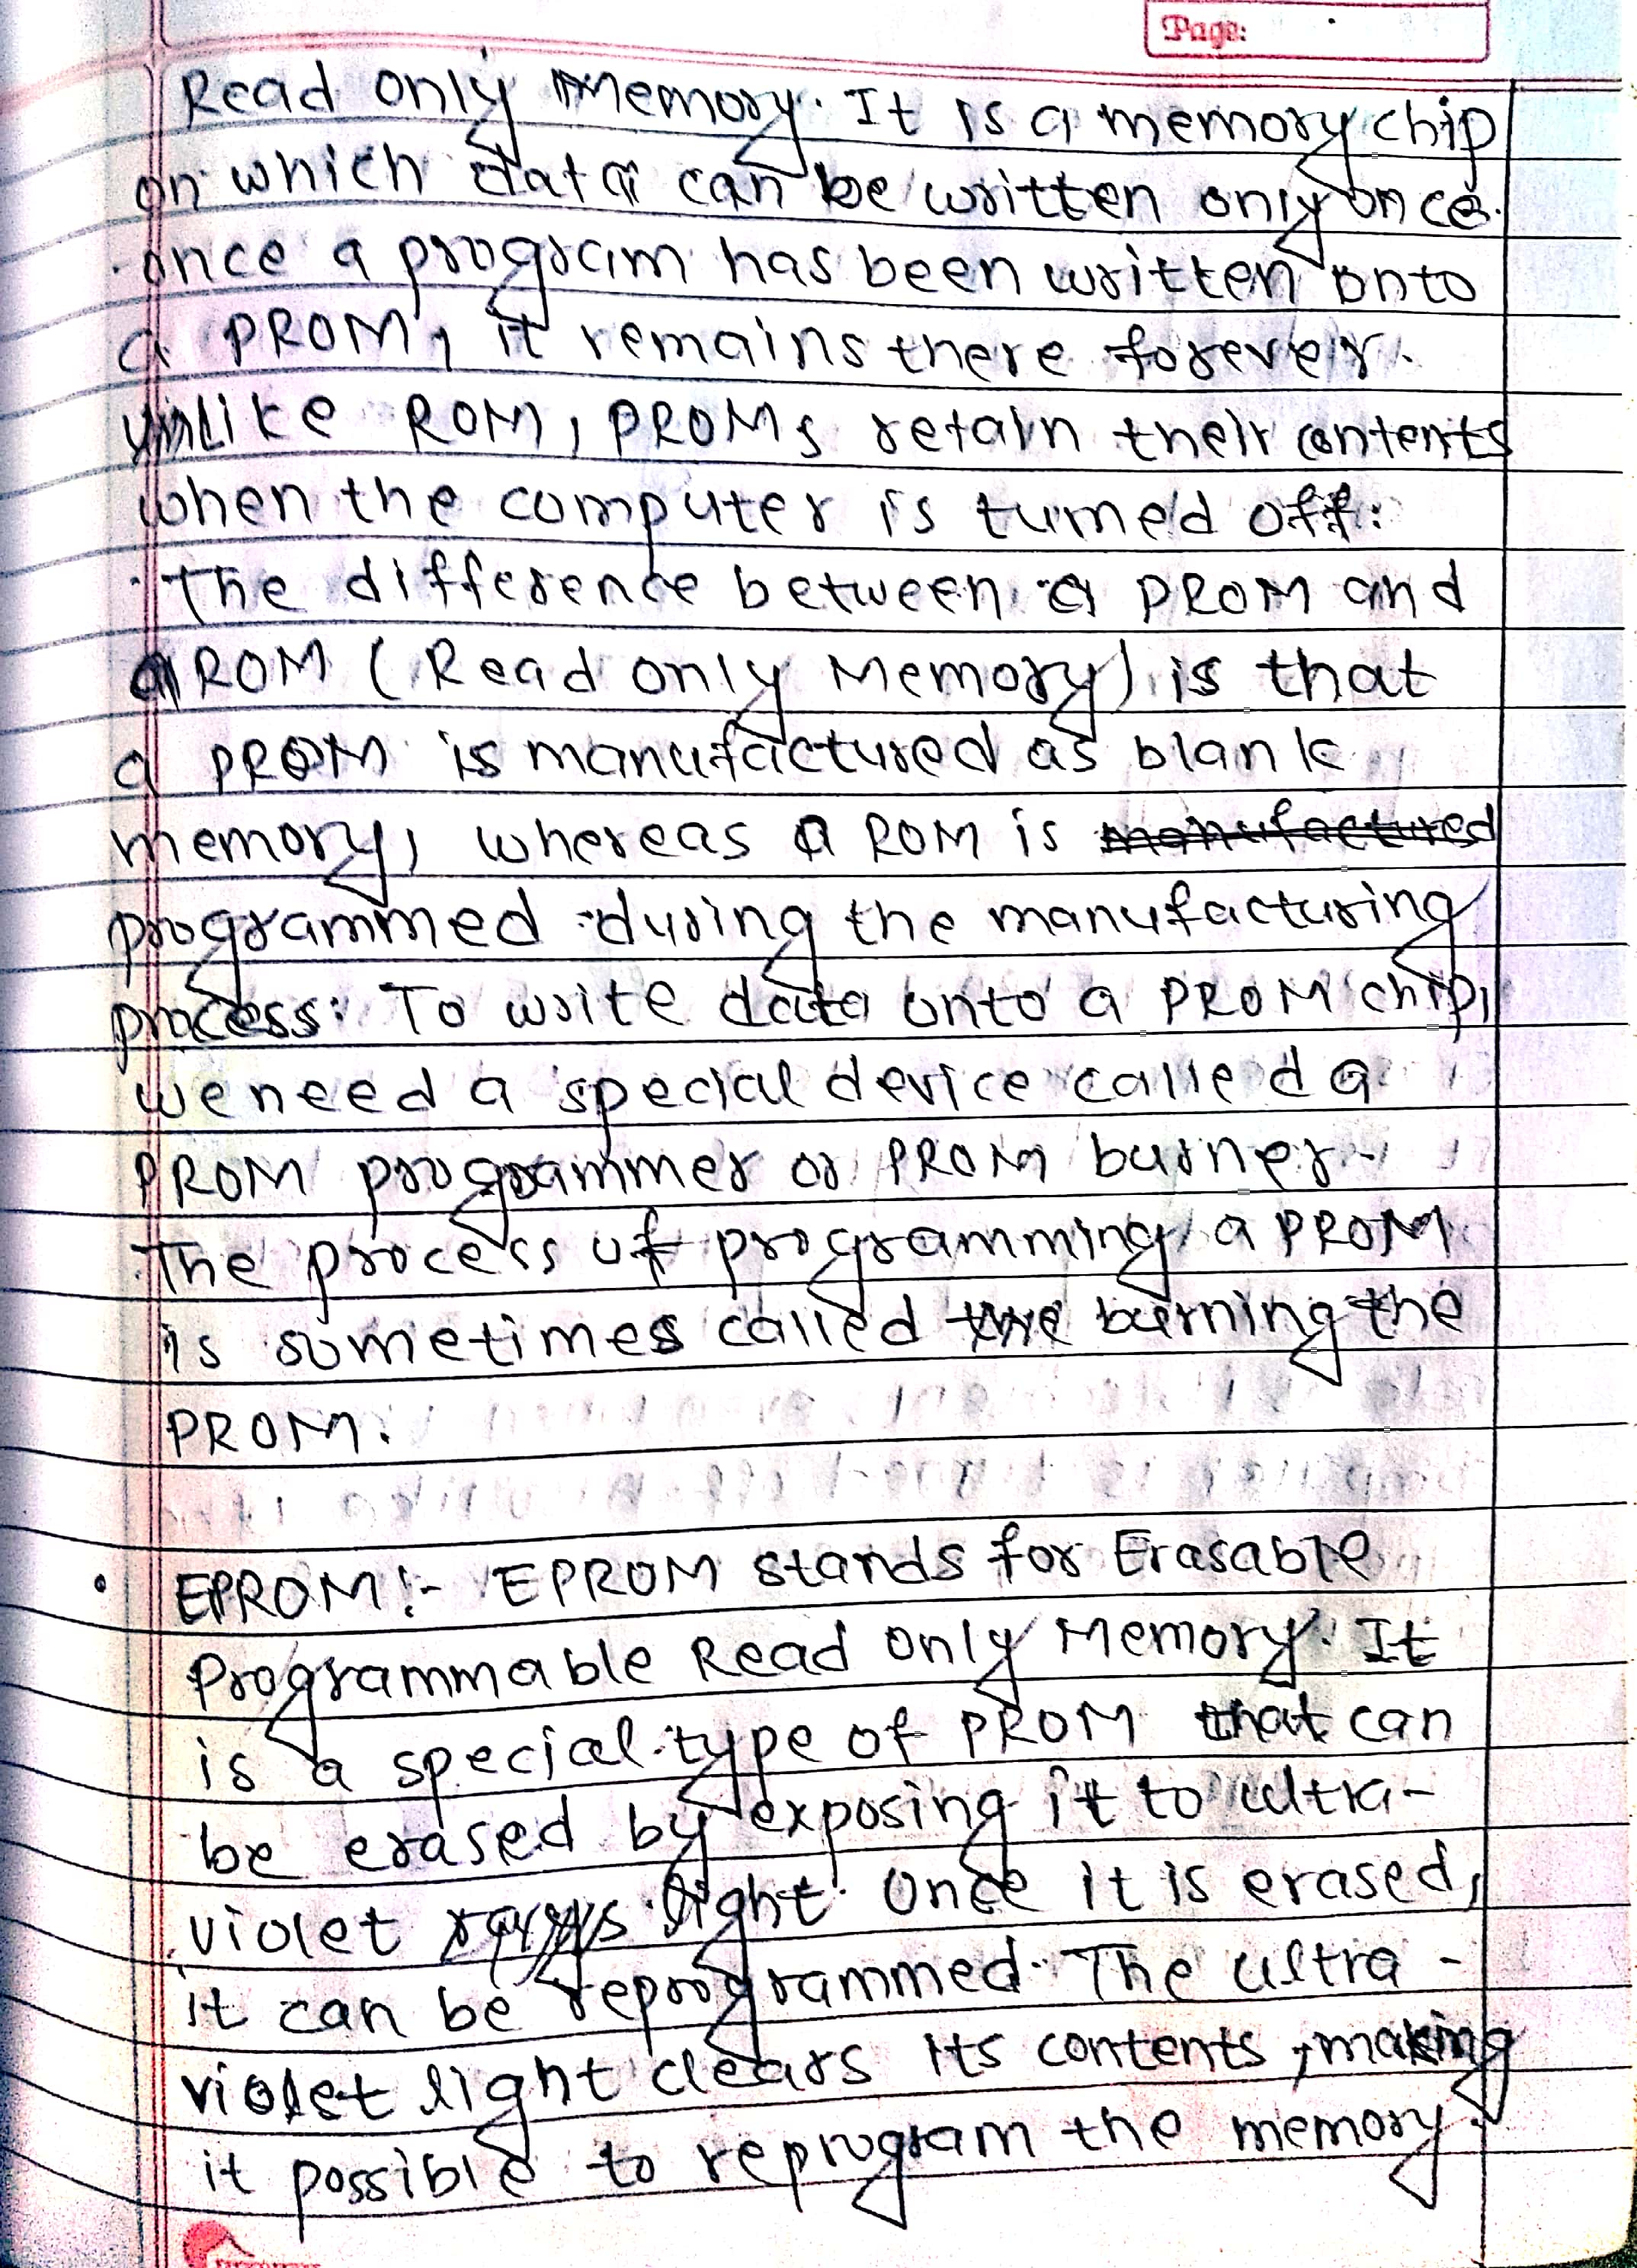 Page:
Read only Memory. It is a memory chip
on which data can be written only once.
once a program has been written onto
a PROM, it remains there forever.
unlike ROM, PROMs retain their contents
when the computer is turned off.
The difference between a PROM and
a ROM (Read only Memory) is that
a PROM is manufactured as blank
memory, whereas a ROM is manufactured
programmed during the manufacturing
process. To write data onto a PROM chip,
we need a special device called a
PROM programmer or PROM burner.
The process of programming a PROM
is sometimes called the burning the
PROM.
• EPROM:- EPROM stands for Erasable
Programmable Read only Memory. It
is a special type of PROM that can
be erased by exposing it to ultra-
violet rays light. Once it is erased,
it can be reprogrammed. The ultra-
violet light clears its contents, making
it possible to reprogram the memory.